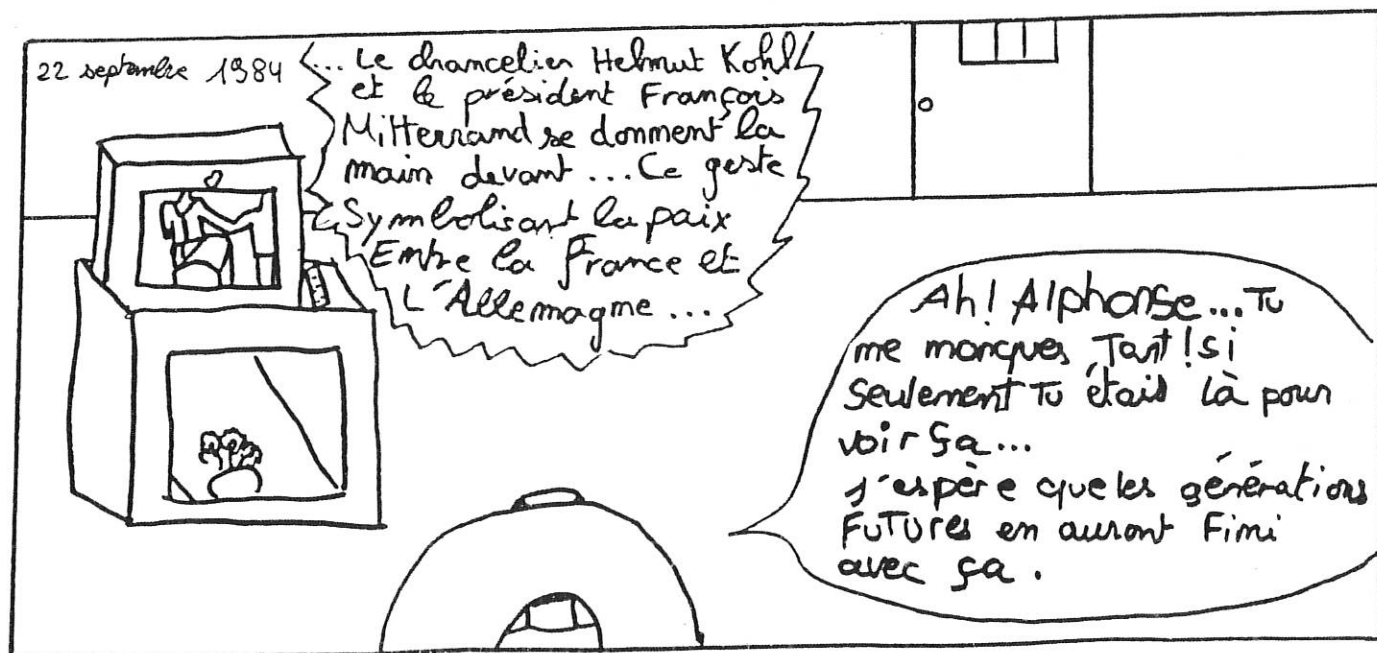 22 septembre 1984
... Le chancelier Helmut Kohl
et le président François
Mitterrand se donnent la
main devant ... Ce geste
Symbolisant la paix
Entre la France et
L'Allemagne ...
Ah! Alphonse... Tu
me manques Tant! si
seulement Tu étais là pour
voir ça...
j'espère que les générations
FUTURES en auront Fini
avec ça.